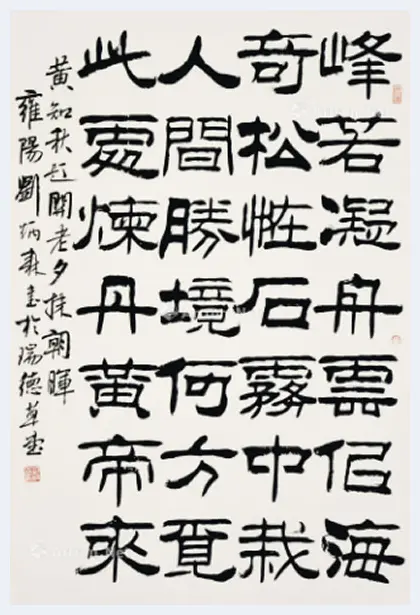 峰若凝舟雲侣海
奇松恠石霧中栽
人間勝境何方覓
此處煉丹黄帝來
黄知秋 關老夕 朝暉
雍陽劉炳森書於 德草堂